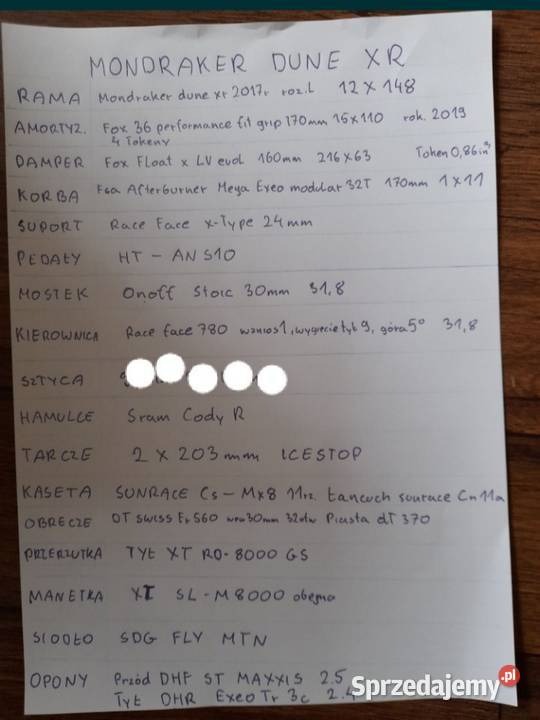 MONDRAKER DUNE XR
RAMA Mondraker dune xr 2017r roz.L 12 x 148
AMORTYZ. Fox 36 performance fit grip 170mm 15x110 rok. 2019
4 Tokeny
DAMPER Fox Float x LV evol 160mm 216x63 Token 0,86in³
KORBA Fsa Afterburner Mega Exeo modular 32T 170mm 1x11
SUPORT Race Face X-Type 24mm
PEDAŁY HT - AN S10
MOSTEK Onoff Stoic 30mm 31,8
KIEROWNICA Race face 780 wznios1, wygięcie tył 9, góra 5° 31,8
SZTYCA
HAMULCE Sram Cody R
TARCZE 2 x 203mm ICESTOP
KASETA SUNRACE Cs - Mx8 11rz. Łańcuch sunrace Cn11a
OBRĘCZE DT swiss Ex560 wew30mm 32otw Piasta dT 370
PRZERZUTKA TYŁ XT RD-8000 GS
MANETKA XT SL-M8000 obejma
SIODŁO SDG FLY MTN
OPONY Przód DHF ST MAXXIS 2.5
Tył DHR Exeo Tr 3c 2.4
Sprzedajemy.pl